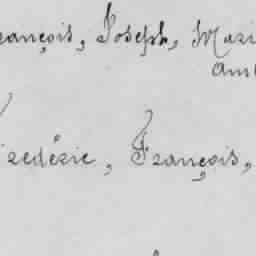 rançois, Joseph, Mari
Am
Frédéric, François,